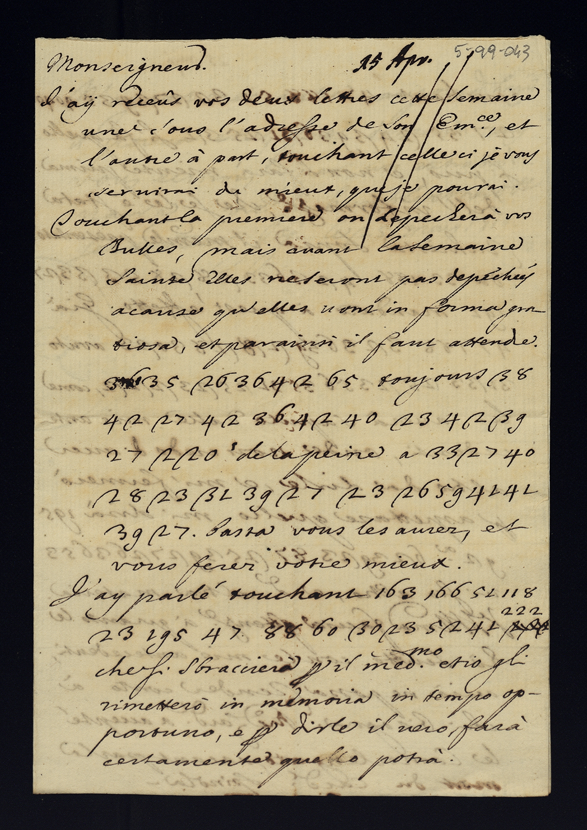 5-99-043
Monseigneur. 15 Apr.
J'aÿ receûs vos deux lettres cette semaine
une sous l'adresse de Son Em.ce, et
l'autre à part, touchant celle ci je vous
servirai du mieux, que je pourai.
Touchant la premiere on depechera vos
Bulles, mais avant la semaine
Sainte Elles ne seront pas depechéés
acause qu'elles vont in forma gra-
tiosa, et par ainsi il faut attendre.
35 26 36 42 65 toujours 38
42 27 42 36 42 40 23 42 39
27 22 20 de la peine a 33 27 40
28 23 31 39 27 23 26 59 41 41
39 27. Basta vous les aurez, et
vous ferez votre mieux.
J'ay parlé touchant 163 166 51 118
23 195 47 88 60 30 23 52 41 222
che si sbraccierà p il med.mo et io gli
rimetterò in memoria in tempo op-
portuno, e p dirle il vero, farà
certamente quello potrà.